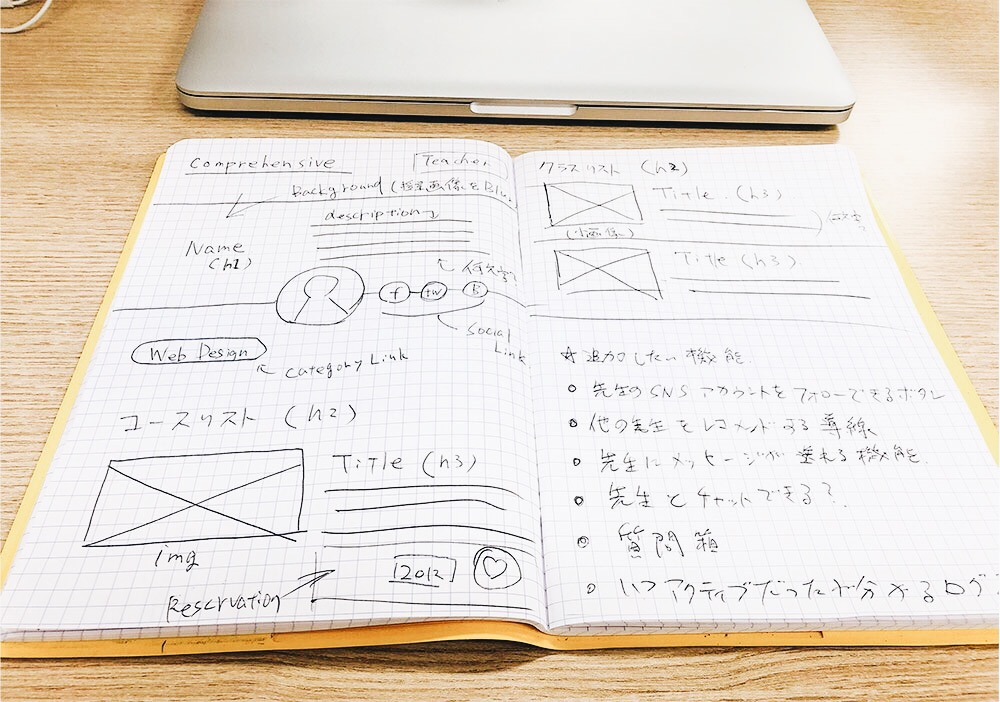 Comprehensive
Teacher
Background (授業画像をBlur
description
Name
(h1)
何文字?
f
tw
B
Social
Link
Web Design
Category Link
コースリスト (h2)
Title (h3)
img
Reservation
クラスリスト (h2)
Title (h3)
Title (h3)
☆追加したい機能
先生のSNSアカウントをフォローできるボタン
他の先生をレコメンドする導線
先生にメッセージが送れる機能
先生とチャットできる?
質問箱
いつアクティブだったか分かるログ